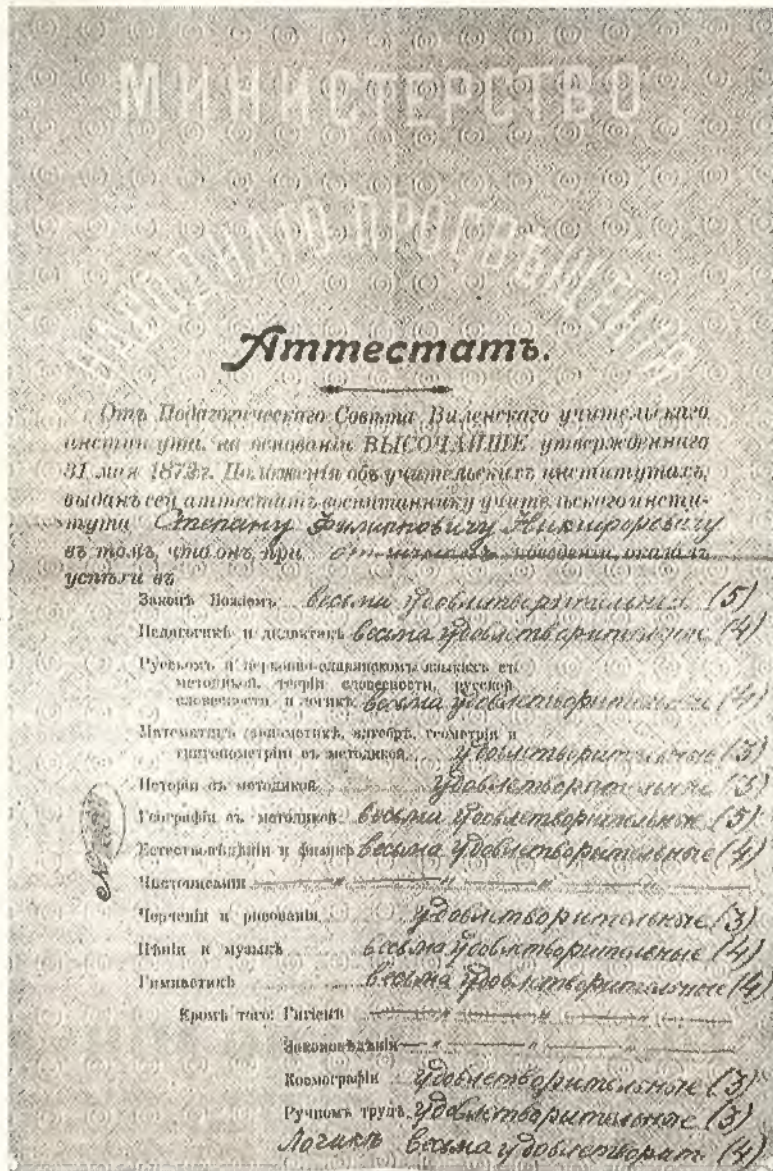 МИНИСТЕРСТВО
НАРОДНАГО ПРОСВѢЩЕНІЯ
Аттестатъ.
Отъ Педагогическаго Совѣта Виленскаго учительскаго
института, на основаніи ВЫСОЧАЙШЕ утвержденнаго
31 мая 1872 г. Положенія объ учительскихъ институтахъ,
выданъ сей аттестатъ воспитаннику учительскаго инсти-
тута Степану Никифоровичу
въ томъ, что онъ, при отличномъ поведеніи, оказалъ
успѣхи въ
Законѣ Божіемъ весьма удовлетворительные (5)
Педагогикѣ и дидактикѣ весьма удовлетворительные (4)
Русскомъ и церковно-славянскомъ языкахъ съ
методикой, теоріи словесности, русской
словесности и логикѣ весьма удовлетворительные (4)
Математикѣ (ариѳметикѣ, алгебрѣ, геометріи и
тригонометріи съ методикой удовлетворительные (3)
Исторіи съ методикой удовлетворительные (3)
Географіи съ методикой весьма удовлетворительные (5)
Естествовѣдѣніи и физикѣ весьма удовлетворительные (4)
№
Чистописаніи
Черченіи и рисованіи удовлетворительные (3)
Пѣніи и музыкѣ весьма удовлетворительные (4)
Гимнастикѣ весьма удовлетворительные (4)
Кромѣ того: Гигіенѣ
Законовѣдѣніи
Космографіи удовлетворительные (3)
Ручномъ трудѣ удовлетворительные (3)
Логикѣ весьма удовлетворит. (4)